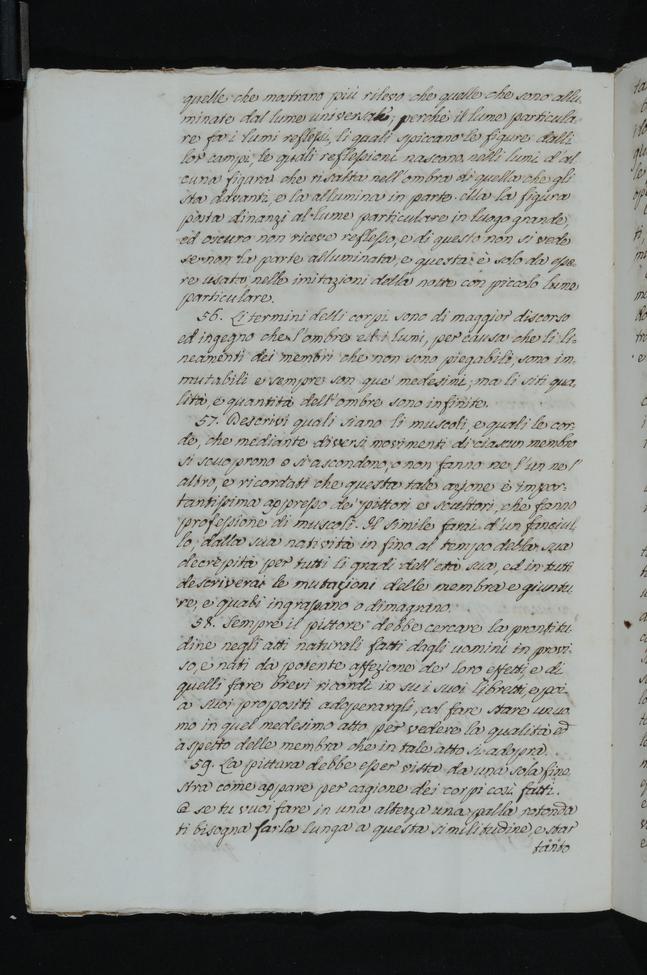 quelle che mostrano più rilevo che quelle che sono allu
minate dal lume universale, perchè il lume particula
re fà i lumi reflessi, li quali spiccano le figure dalli
lor campi, le quali reflessioni nascono nelli lumi d'al
cuna figura che risalta nell'ombra di quella che gli
sta davanti, e la allumina in parte. Ma la figura
posta dinanzi al lume particulare in luogo grande,
ed oscuro non riceve reflesso, e di questo non si vede
se non la parte alluminata, e questa è solo da esse
re usata nelle imitazioni della notte con piccolo lume
particulare.
56. Li termini delli corpi sono di maggior discorso
ed ingegno che l'ombre ed i lumi, per causa che li li
neamenti dei membri che non sono piegabili, sono im
mutabili e sempre son que' medesimi; ma li siti qua
lità, e quantità dell'ombre sono infinite.
57. Descrivi quali siano li muscoli, e quali le cor
de, che mediante diversi movimenti di ciascun membro
si scuoprono o si ascondono, o non fanno ne l'un ne l'
altro, e ricordati che questa tale azione è impor
tantissima appresso de' pittori e scultori, che fanno
professione di muscoli. Il simile farai d'un fanciul
lo, dalla sua natività in fino al tempo della sua
decrepità per tutti li gradi dell'età sua, ed in tutti
descriverai le mutazioni delle membra e giuntu
re, e quali ingrassano o dimagrano.
58. Sempre il pittore debbe cercare la prontitu
dine negli atti naturali fatti dagli uomini in provi
so, e nati da potente affezione de' loro effetti, e di
quelli fare brevi ricordi in su i suoi libretti, e poi
a suoi propositi adoperargli, col fare stare un uo
mo in quel medesimo atto per vedere la qualità ed
aspetto delle membra che in tale atto si adopra.
59. La pittura debbe esser vista da una sola fine
stra come appare per cagione dei corpi così fatti.
E se tu vuoi fare in una altezza una palla rotonda
ti bisogna farla lunga a questa similitudine, e star
tanto